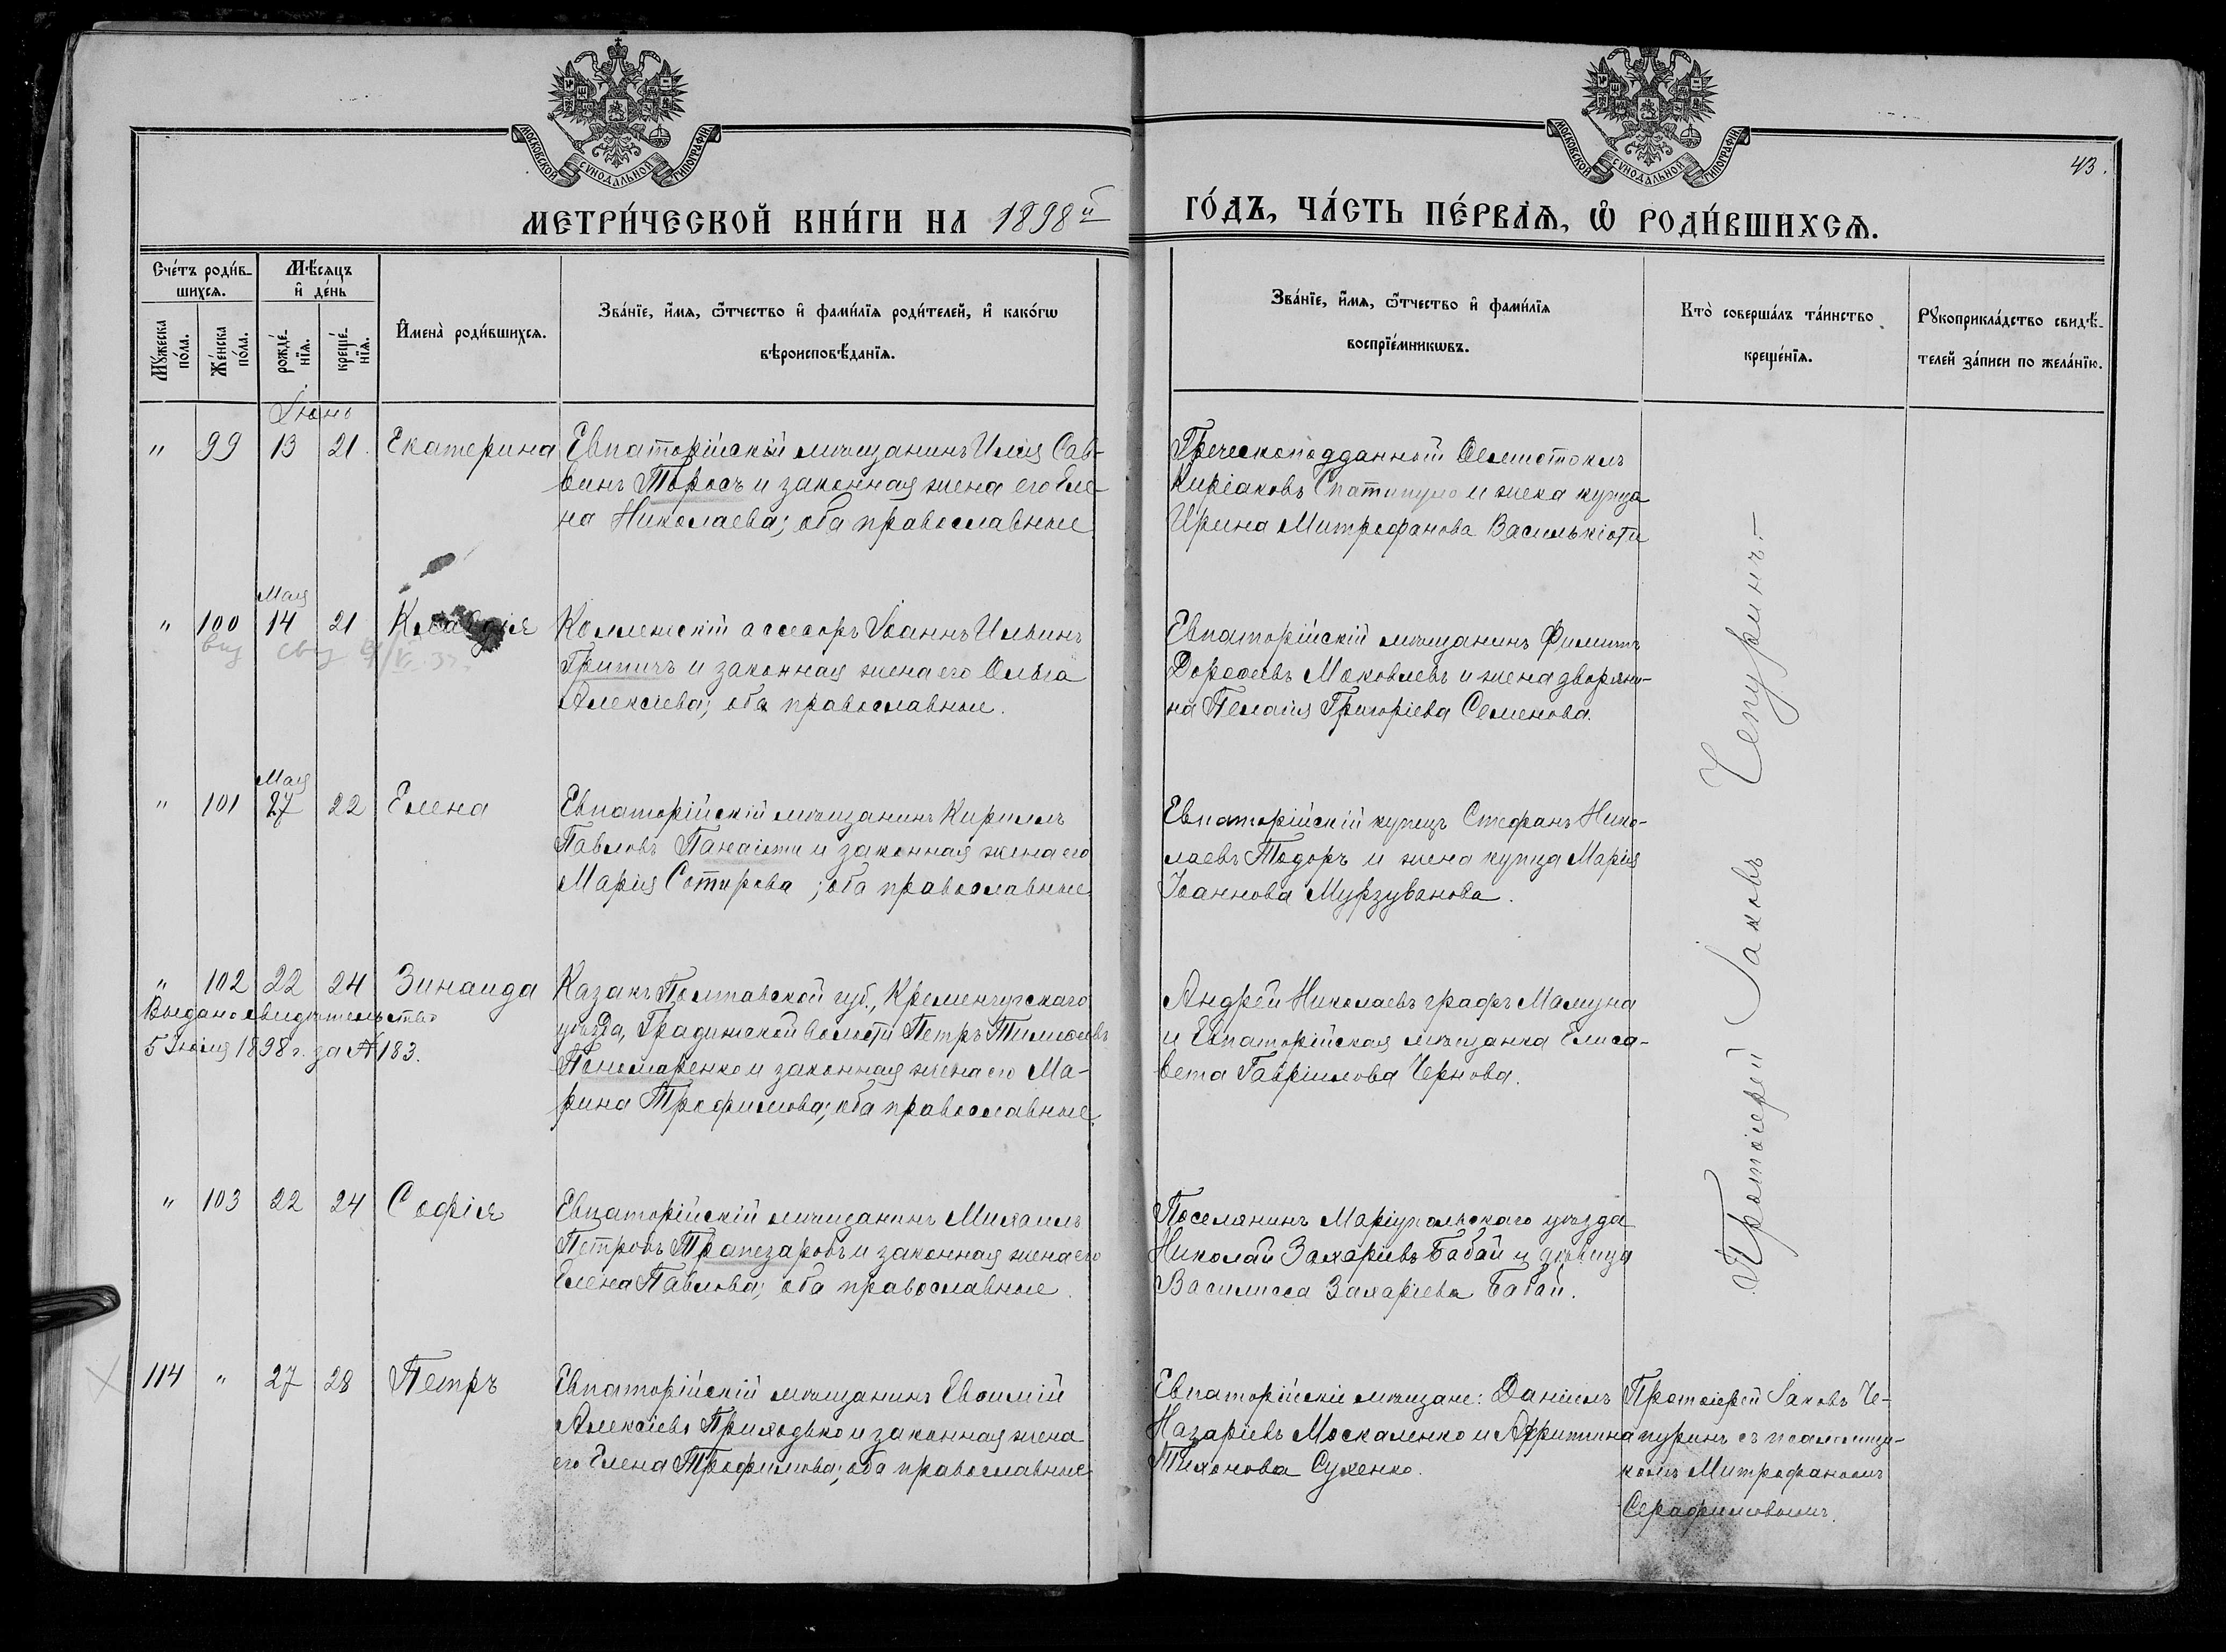 МОСКОВСКОЙ СУНОДАЛЬНОЙ ТИПОГРАФІИ
МОСКОВСКОЙ СУНОДАЛЬНОЙ ТИПОГРАФІИ
43.
МЕТРИ́ЧЕСКОЙ КНИ́ГИ НА 1898й
ГО́ДЪ, ЧА́СТЬ ПЕ́РВАѦ, Ѡ РОДИ́ВШИХСѦ.
Сче́тъ роди́в-
шихсѧ.
Мѣ́сѧцъ
и҆ де́нь
Мꙋ́жеска
по́ла.
Же́нска
по́ла.
рожде́-
нїѧ.
креще́-
нїѧ.
И҆мена̀ роди́вшихсѧ.
Зва́нїе, и҆́мѧ, ѻ҆́тчество и҆ фами́лїѧ роди́телей, и҆ како́гѡ
вѣроисповѣ́данїѧ.
Зва́нїе, и҆́мѧ, ѻ҆́тчество и҆ фами́лїѧ
воспрїе́мникѡвъ.
Кто̀ соверша́лъ та́инство
креще́нїѧ.
Рꙋкоприкла́дство свидѣ́-
телей за́писи по жела́нїю.
Іюнь
" 99 13 21. Екатерина
Евпаторійскій мѣщанинъ Илія Сав-
винъ Торосъ и законная жена его Еле-
на Николаева; оба православные
Греческоподданный Ѳемистоклъ
Киріаковъ и жена купца
Ирина Митрофанова Василькіоти
Мая
" 100 14 21 Клавдія
Коллежскій ассесоръ Іоаннъ Ильинъ
Грипичъ и законная жена его Ольга
Алексіева; оба православные.
Евпаторійскій мѣщанинъ Филиппъ
Дороѳеевъ Моковлевъ и жена дворяни-
на Пелагія Григоріева Семенова.
Мая
" 101 27 22 Елена
Евпаторійскій мѣщанинъ Кириллъ
Павловъ Панаіоти и законная жена его
Марія Сотирова; оба православные
Евпаторійскій купецъ Стефанъ Нико-
лаевъ Тодоръ и жена купца Марія
Іоаннова Мурзуванова.
" 102 22 24 Зинаида
Выдано свидѣтельство
5 Іюля 1898 г. за № 183.
Казакъ Полтавской губ., Кременчугскаго
уѣзда, Градижской волости Петръ Тимоѳеевъ
Пономаренко и законная жена его Ма-
рина Трофимова; оба православные.
Андрей Николаевъ графъ Мамуна
и Евпаторійская мѣщанка Елиса-
вета Гавріилова Чернова.
" 103 22 24 Софія
Евпаторійскій мѣщанинъ Михаилъ
Петровъ Трапезаровъ и законная жена его
Елена Павлова; оба православные.
Поселянинъ Маріупольскаго уѣзда
Николай Захаріевъ Бабай и дѣвица
Василиса Захаріева Бабай.
Протоіерей Іаковъ Чепуринъ—
114 " 27 28 Петръ
Евпаторійскій мѣщанинъ Евѳимій
Алексіевъ Приходько и законная жена
его Елена Трофимова; оба православные
Евпаторійскіе мѣщане: Даніилъ
Назаріевъ Москаленко и
Тихонова Сухенко.
Протоіерей Іаковъ Че-
пуринъ съ псаломщи-
комъ Митрофаномъ
Серафимовымъ.